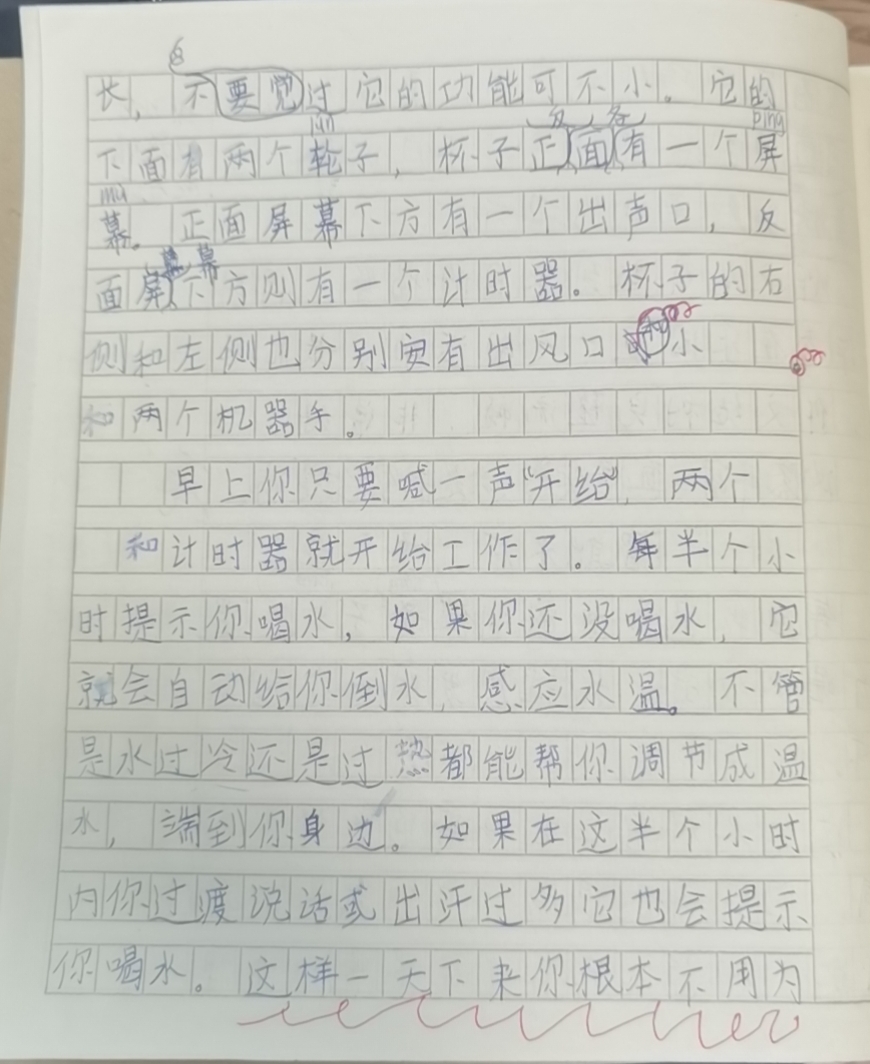 长，不要觉过它的功能可不小。它的
下面有两个轮子，杯子正反面各有一个屏
幕。正面屏幕下方有一个出声口，反
面屏幕下方则有一个计时器。杯子的右
侧和左侧也分别安有出风口小
和两个机器手。
早上你只要喊一声“开给”，两个
和计时器就开给工作了。每半个小
时提示你喝水，如果你还没喝水，它
就会自动给你倒水，感应水温。不管
是水过冷还是过热都能帮你调节成温
水，端到你身边。如果在这半个小时
内你过渡说话或出汗过多它也会提示
你喝水。这样一天下来你根本不用为